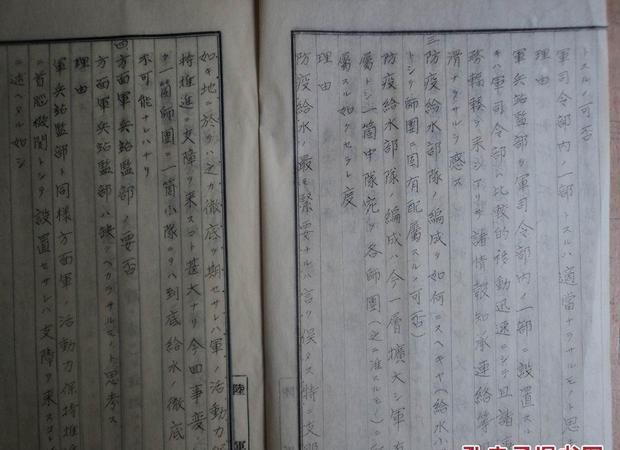 トスルノ可否
理由
軍司令部内ノ一部トスルハ適當ナラサルモノト思
軍兵站監部ヲ軍司令部内ノ一部ニ設置ス
キハ軍司令部ハ比較的移動迅速ニシテ且諸事
務輻輳ヲ来シアリテ諸情報知承連絡等
滑ナラサルヲ感ス
三防疫給水部隊ノ編成ヲ如何ニスヘキヤ(給水ハ
トシテ師團ニ固有配屬スルノ可否)
防疫給水部隊ノ編成ハ今一層擴大シ軍
屬トシ一箇中隊宛ヲ各師團(之ニ準スルモノ)ニ
屬スル如クセラレ度
理由
防疫給水ノ最モ緊要ナルハ言ヲ俟タス特ニ支那
如キ地ニ於テ之カ徹底ヲ期セサレハ軍ノ活動力保
持推進ニ支障ヲ来スコト甚大ナリ今回事変ノ
ク一箇師團ニ一箇小隊ニテハ到底給水ノ徹底
不可能ナレハナリ
四方面軍兵站監部ノ要否
方面軍兵站監部ハ缺クヘカラサルモノト思考ス
理由
軍兵站監部ト同様方面軍ノ活動力保持推進
ニ首脳機関トシテ設置セサレハ支障ヲ来スコト
ニ述ヘタル如シ
陸軍